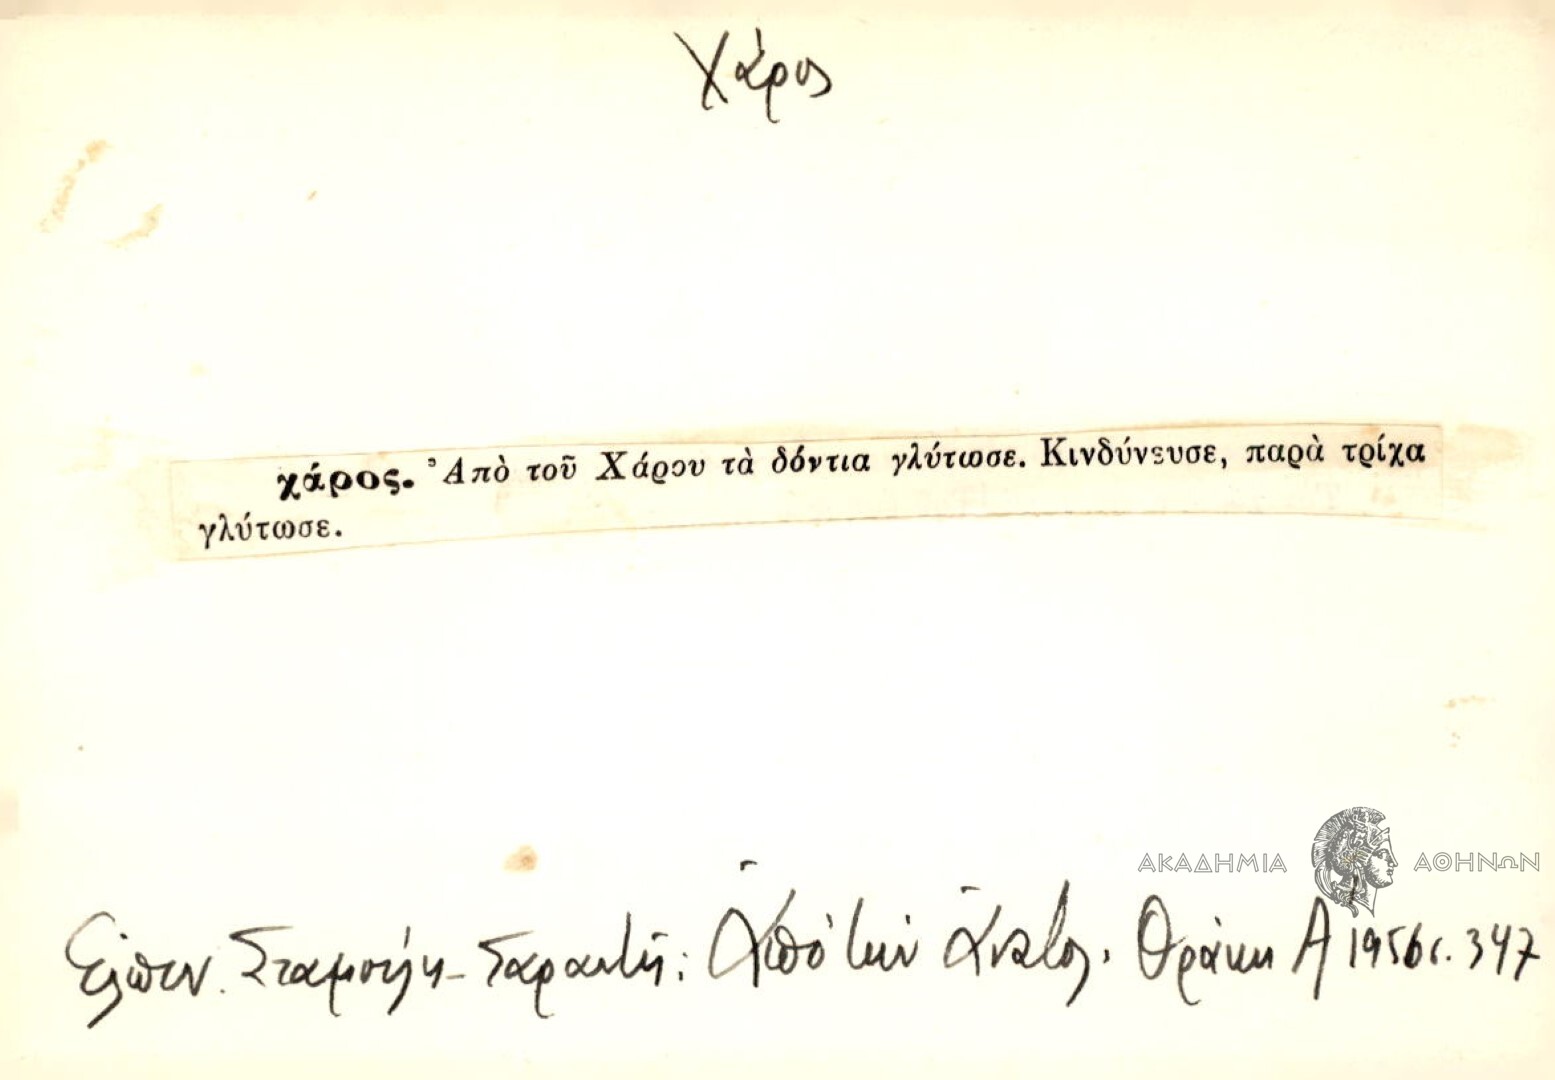 Χάρος
χάρος. Ἀπὸ τοῦ Χάρου τὰ δόντια γλύτωσε. Κινδύνευσε, παρὰ τρίχα
γλύτωσε.
ΑΚΑΔΗΜΙΑ ΑΘΗΝΩΝ
Ἐλπιν. Σταμούλη - Σαραντῆ: Ἀπὸ τὴν Ἀνατολ. Θράκη Α 1956 σ. 347